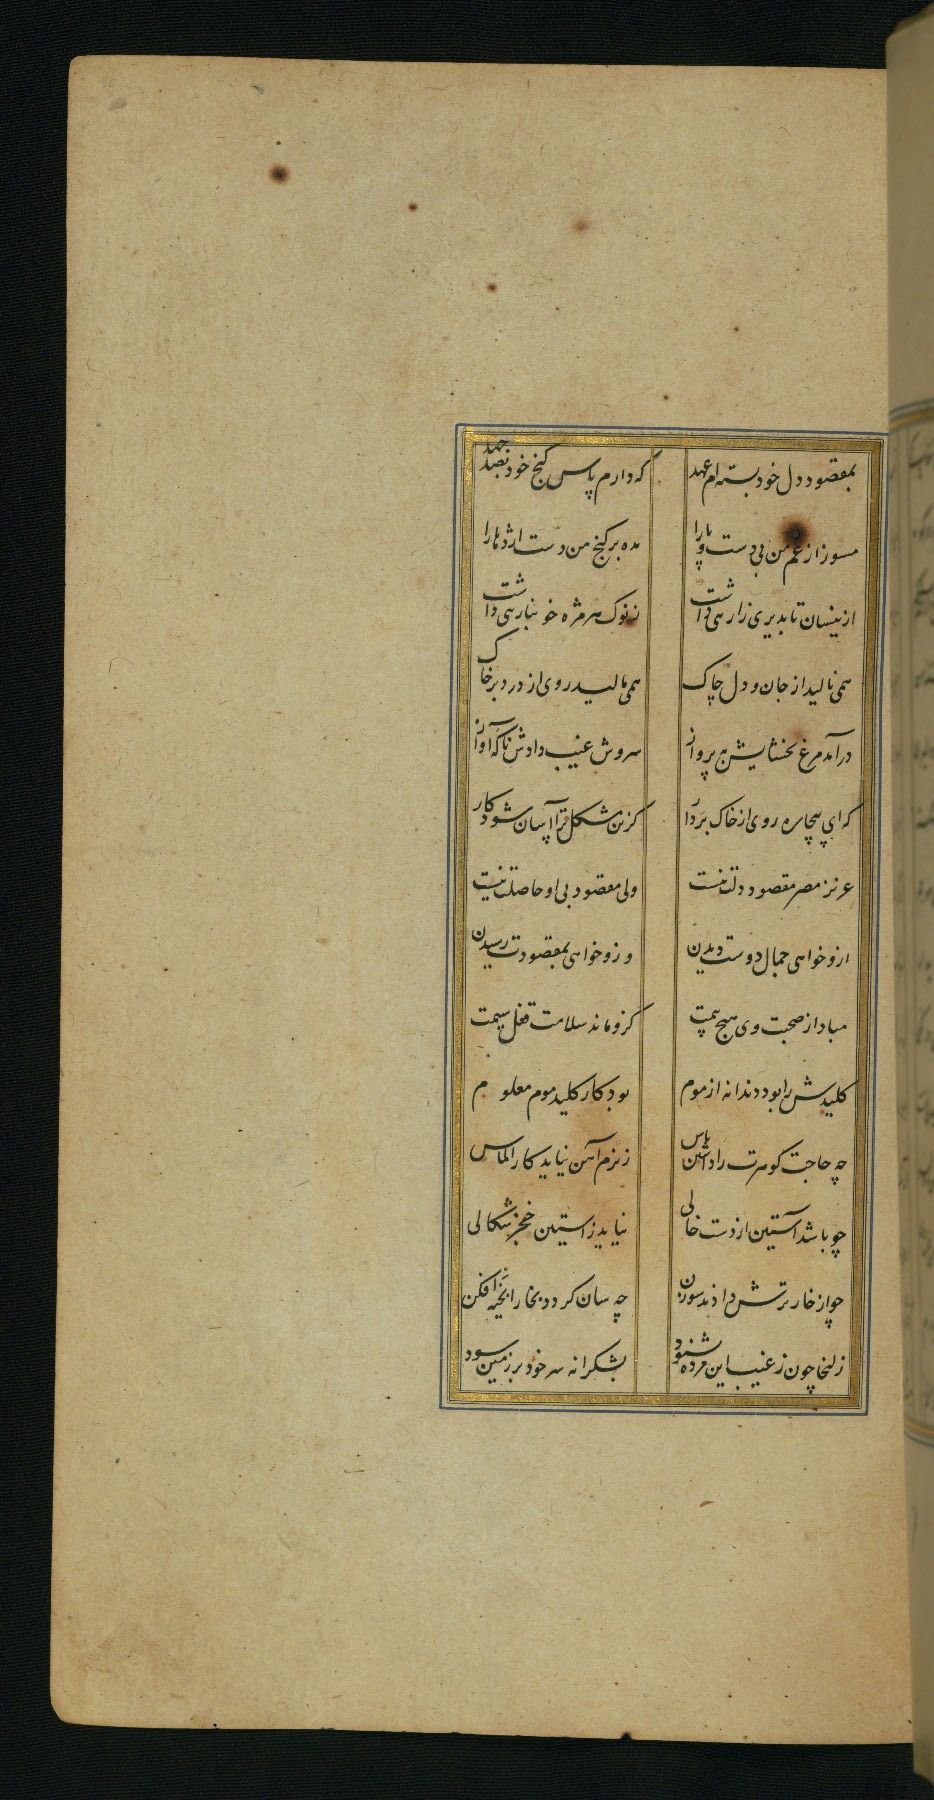 بمقصود دل خود بسته ام عهد که دارم پاس گنج خود بصد جهد
مسوز از غم من بی دست و پا را مده بر گنج من دست اژدها را
ازینسان تا بدیری زاری داشت ز نوک هر مژه خونباری داشت
همی نالید از جان و دل چاک همی مالید روی از درد بر خاک
درآمد مرغ بخشایش به پرواز سروش غیب دادش ناگه آواز
که ای بیچاره روی از خاک بردار کزین مشکل ترا آسان شود کار
عزیز مصر مقصود دلت نیست ولی مقصود بی او حاصلت نیست
ازو خواهی جمال دوست دیدن وزو خواهی بمقصودت رسیدن
مباد از صحبت وی هیچ بیمت کزو ماند سلامت قفل سیمت
کلیدش را بود دندانه از موم بود کار کلید موم معلوم
چه حاجت گوهرت را داشتن پاس ز نرم آهن نیاید کار الماس
چو باشد آستین از دست خالی نیاید ز آستین خنجر شکالی
چو از خار ترش دادند سوزن چه سان گردد بخارا بخیه افکن
زلیخا چون ز غیب این مژده بشنود بشکرانه سر خود بر زمین سود